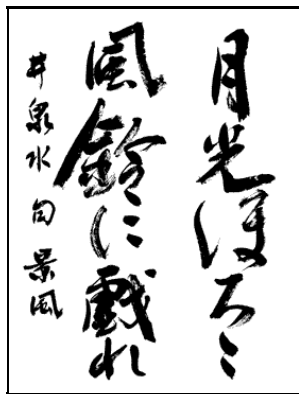 月光ほろ〻
風鈴に戯れ
井泉水句 景風